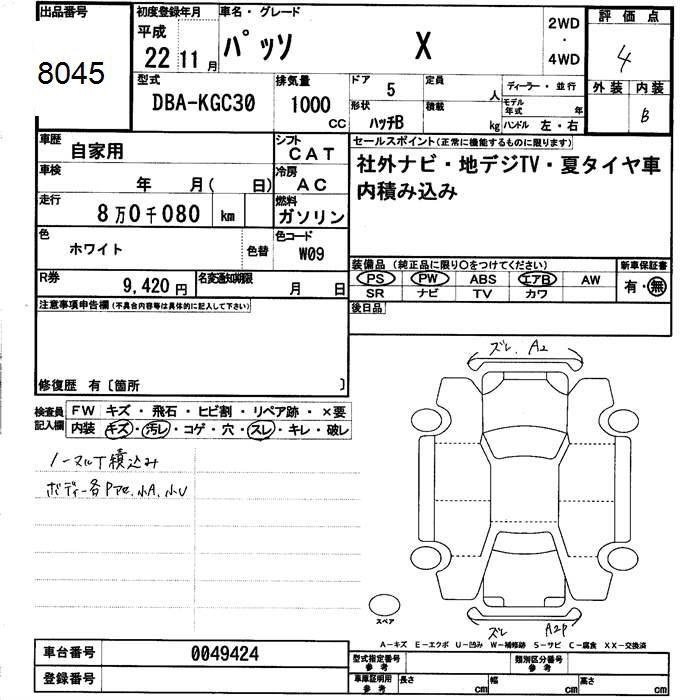 出品番号
8045
初度登録年月
平成
22 11 月
車名・グレード
パッソ X
2WD
・
4WD
評価点
4
外装 内装
B
型式
DBA-KGC30
排気量
1000
CC
ドア 5
定員 人
形状 ハッチB
積載 kg
ディーラー・並行
モデル年式 年
ハンドル 左・右
車歴
自家用
シフト
CAT
車検
年 月( 日)
冷房
AC
走行
8万0千080 km
燃料
ガソリン
色
ホワイト
色替
色コード
W09
R券
9,420円
名変通知期限
月 日
セールスポイント(正常に機能するものに限ります)
社外ナビ・地デジTV・夏タイヤ車
内積み込み
装備品(純正品に限り○をつけてください)
PS PW ABS エアB AW
SR ナビ TV カワ
新車保証書
有・無
後日品
注意事項申告欄(不具合内容等は具体的に記入して下さい)
修復歴 有〔箇所 〕
検査員
記入欄
FW キズ・飛石・ヒビ割・リペア跡・×要
内装 キズ・汚レ・コゲ・穴・スレ・キレ・破レ
ノーマルT積込み
ボディー各Pアセ、小A、小U
ズレ、A2
スペア
ズレ A2P
A-キズ E-エクボ U-凹み W-補修跡 S-サビ C-腐食 XX-交換済
車台番号 0049424
登録番号
型式指定番号
参考
類別区分番号
参考
車庫証明用
参考
長さ cm
幅 cm
高さ cm